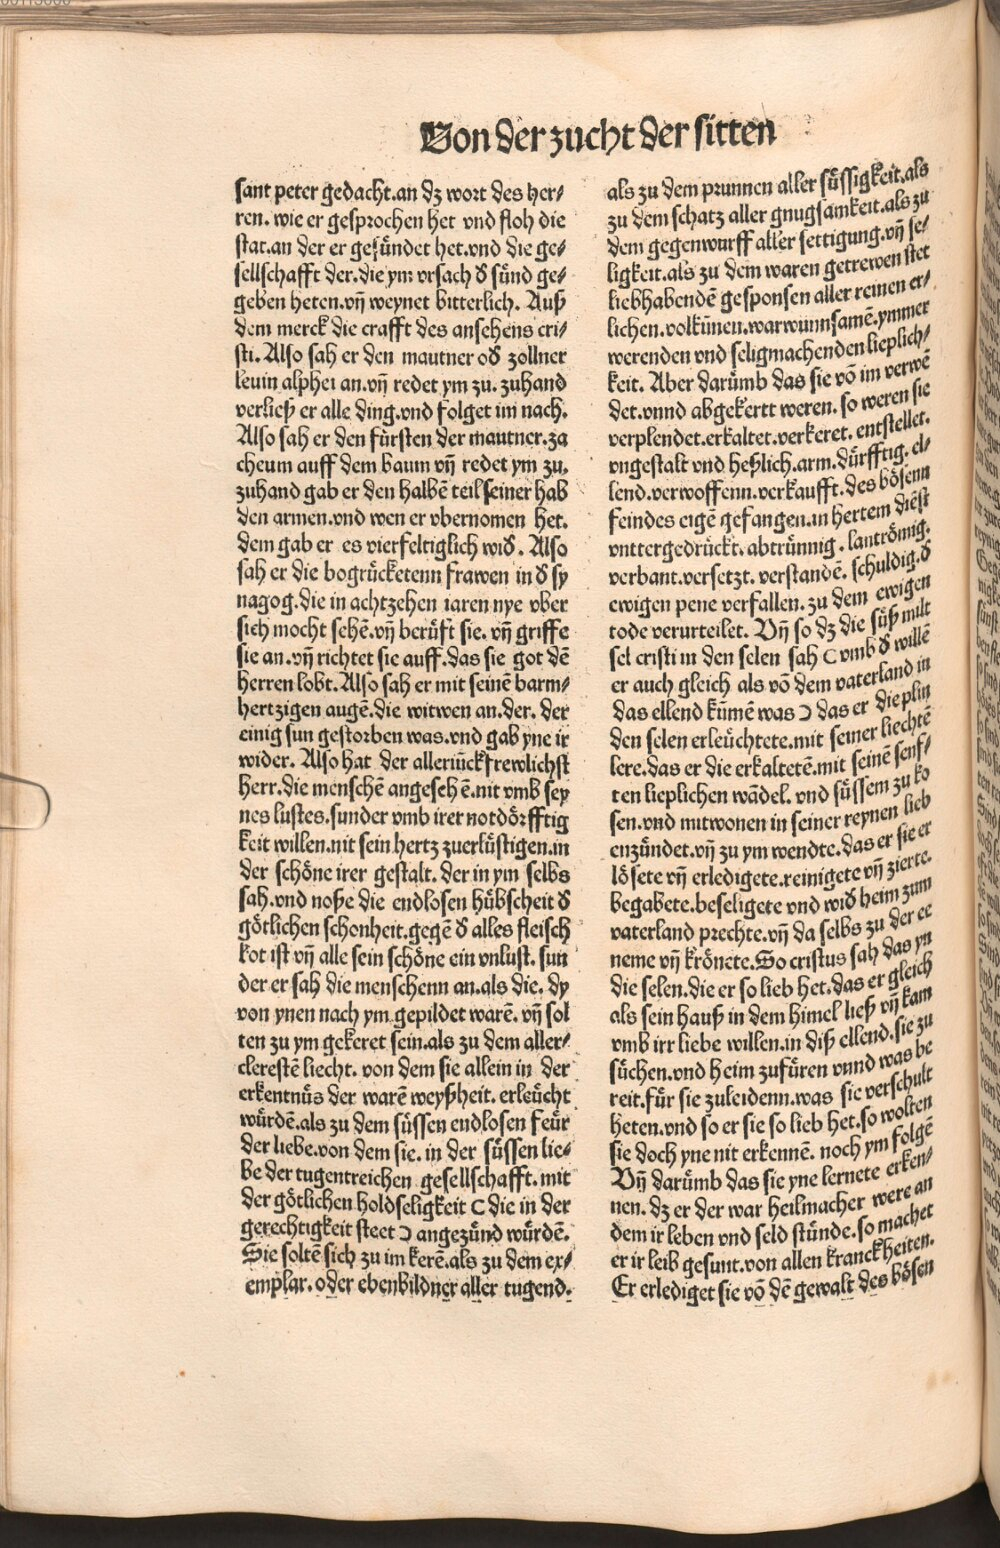 Von der zucht der sitten
sant peter gedacht.an dz wort des her⸗
ren. wie er gesprochen het vnd floh die
stat.an der er gesündet het.vnd die ge⸗
sellschafft der.die ym vrsach d̕ sünd ge⸗
geben heten.vn̄ weynet bitterlich. Auß
dem merck die crafft des ansehens cri⸗
sti. Also sah er den mautner od̕ zollner
leuin alphei an.vn̄ redet ym zu. zuhand
verließ er alle ding.vnd folget im nach.
Also sah er den fürsten der mautner.za
cheum auff dem baum vn̄ redet ym zu.
zuhand gab er den halbē teil seiner hab
den armen.vnd wen er vbernomen het.
dem gab er es vierfeltiglich wid̕. Also
sah er die bogrücketenn frawen in d̕ sy
nagog.die in achtzehen iaren nye vber
sich mocht sehē.vn̄ berüft sie. vn̄ griffe
sie an.vn̄ richtet sie auff.das sie got dē
herren lobt.Also sah er mit seinē barm⸗
hertzigen augē.die witwen an.der. der
einig sun gestorben was.vnd gab yne ir
wider. Also hat der alleriückfrewlichst
herr.die menschē angesehē.nit vmb sey
nes lustes.sunder vmb irer notdörfftig
keit willen.nit sein hertz zuerlüstigen.in
der schöne irer gestalt. der in ym selbs
sah.vnd noße die endlosen hübscheit d̕
götlichen schonheit.gegē d̕ alles fleisch
kot ist vn̄ alle sein schöne ein vnlust. sun
der er sah die menschenn an.als die. dy
von ynen nach ym gepildet warē. vn̄ sol
ten zu ym gekeret sein.als zu dem aller⸗
clerestē liecht. von dem sie allein in der
erkentnüs der warē weyßheit. erleücht
würdē.als zu dem süssen endlosen feür
der liebe.von dem sie. in der süssen lie⸗
be der tugentreichen gesellschafft. mit
der götlichen holdseligkeit ( die in der
gerechtigkeit steet ) angezünd würdē.
Sie soltē sich zu im kerē.als zu dem ex⸗
emplar. oder ebenbildner aller tugend.
als zu dem prunnen aller süssigkeit.als
zu dem schatz aller gnugsamkeit.als zu
dem gegenwurff aller settigung.vn̄ se⸗
ligkeit.als zu dem waren getrewen stet
liebhabendē gesponsen aller reinen er⸗
lichen.volkūmen.warwunnsamē.ymmer
werenden vnd seligmachenden lieplich⸗
keit. Aber darümb das sie vō im verwē
det.vnnd abgekertt weren. so weren sie
verplendet.erkaltet.verkeret. entstellet.
vngestalt vnd heßlich.arm.dürfftig. el⸗
lend.verwoffenn.verkaufft.des bösenn
feindes eigē gefangen.in hertem diēst
vnttergedrückt. abtrünnig. lantrömig.
verbant.versetzt. verstandē. schuldig.d̕
ewigen pene verfallen. zu dem ewigen
tode verurteilet. Vn̄ so dz die süß milt
sel cristi in den selen sah ( vmb d̕ willē
er auch gleich als vō dem vaterland in
das ellend kūmē was ) das er die plin
den selen erleüchtete.mit seiner liechtē
lere.das er die erkaltetē.mit seinē senf⸗
ten lieplichen wādel. vnd süssem zu ko
sen.vnd mitwonen in seiner reynen lieb
enzündet.vn̄ zu ym wendte.das er sie er
lösete vn̄ erledigete.reinigete vn̄ zierte.
begabete.beseligete vnd wid̕ heim zum
vaterland prechte.vn̄ da selbs zu der ee
neme vn̄ krönete.So cristus sah das yn
die selen.die er so lieb het.das er gleich
als sein hauß in dem himel ließ vn̄ kam
vmb irr liebe willen.in diß ellend.sie zu
süchen.vnd heim zufüren vnnd was be
reit.für sie zuleidenn.was sie verschult
heten.vnd so er sie so lieb het.so wolten
sie doch yne nit erkennē. noch ym folgē
Vn̄ darümb das sie yne lernete erken⸗
nen. dz er der war heilmacher were an
dem ir leben vnd seld stünde.so machet
er ir leib gesunt.von allen kranckheiten.
Er erlediget sie vō dē gewalt des bösen